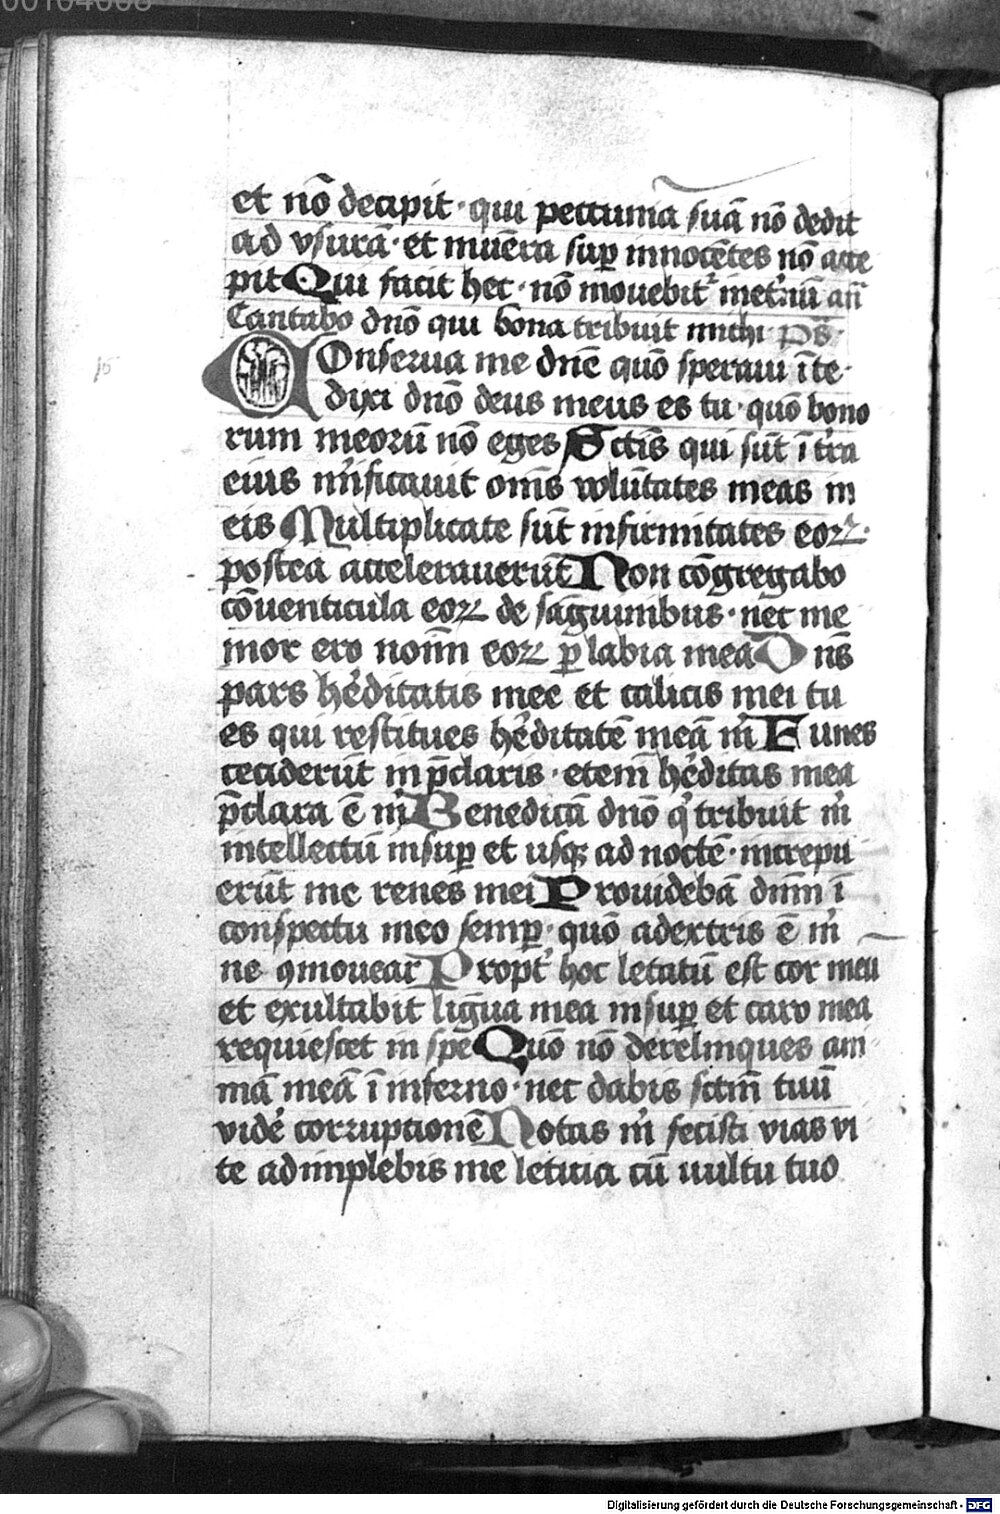 00104608
et nō decipit · qui peccuniā suā nō dedit
ad vsurā · et mun̄era sup̲ innocētes nō acce
pit Qui facit hec · nō mouebit᷑ in et̾nū an̄
Cantabo dnō qui bona tribuit michi ps̄
15
Conserua me dnē quō speraui ī te ·
dixi dnō deus meus es tu · quō bono
rum meorū nō eges Sctīs qui sūt ī t̾ra
eius m̾ificauit om̄s volūtates meas in
eis Multiplicate sūt infirmitates eoꝝ ·
postea accelerauerūt Non cōgregabo
cōuenticula eoꝝ de sāguinibus · nec me
mor ero noīm eoꝝ ꝑ labia mea Dns̄
pars h̾editatis mee et calicis mei tu
es qui restitues h̾editatē meā m̾ Funes
ceciderūt in p̄claris · eteni̅ h̾editas mea
p̄clara ē m̾ Benedicā dnō q̾ tribuit m̾
intellectū insuꝑ et usqꝫ ad noctē · increpu
erūt me renes mei Prouidebā dn̄m ī
conspectu meo semꝑ · quō a dextris ē m̾
ne ꝯmouear Propt̾ hoc letatū est cor meū
et exultabit līgua mea insuꝑ et caro mea
requiescet in spē Quō nō derelinques ani
mā meā ī inferno · nec dabis sctm̄ tuū
vid̾e corruptionē Notas m̾ fecisti vias vi
te adimplebis me leticia cū uultu tuo
Digitalisierung gefördert durch die Deutsche Forschungsgemeinschaft - DFG